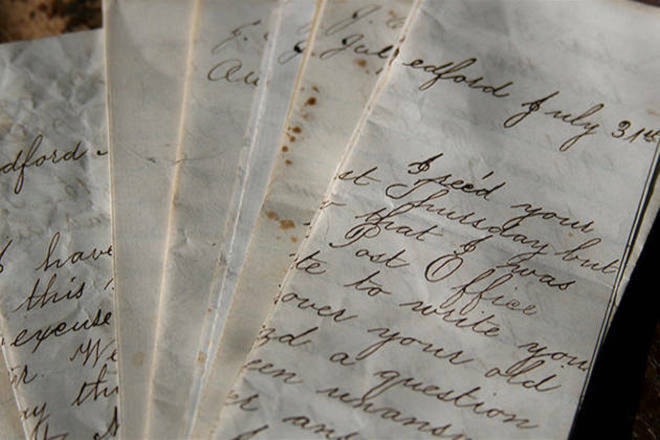 edford July 31st
I rec'd your
st Thursday but
that I was
Post Office
te to write you
over your old
d a question
een unans
er an
dford
I have
this
excuse
r. We
ay th
J. Jul
Au